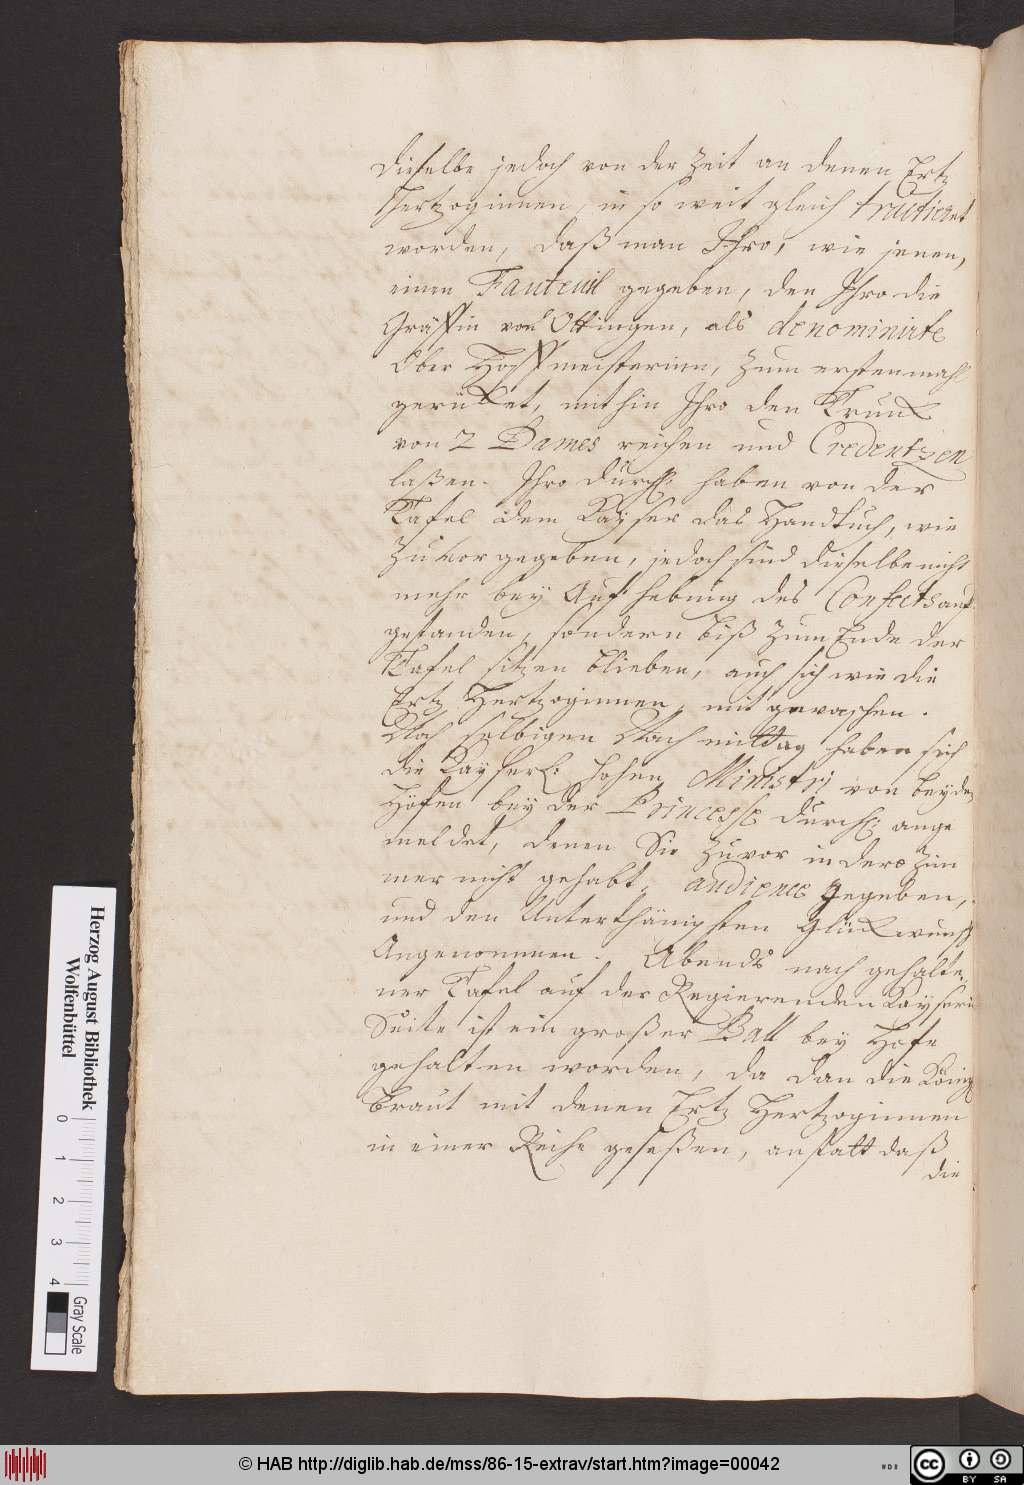 dieselbe jedoch von der Zeit an denen Ertz
Hertzoginnen, in so weit gleich tractieret
worden, daß man Ihro, wie jenen,
einen Fauteuil gegeben, den Ihro die
Gräffin von Ottingen, als denominirte
Ober Hoffmeisterinn, zum erstenmahl
gerücket, mithin Ihro den Trunck
von 2 Dames reichen und Credentzen
laßen. Ihro Durchl: haben von der
Tafel dem Kayser das Handtuch, wie
zuvor gegeben, jedoch sind dieselbe nicht
mehr bey Aufhebung des Confects auf-
gestanden, sondern biß zum Ende der
Tafel sitzen blieben, auch sich wie die
Ertz Hertzoginnen, mit gewaschen.
Nach selbigen Nach mittag haben sich
die Kayserl: hohen Ministri von beyden
Höfen bey der Princesse Durchl: ange
meldet, denen Sie zuvor in dero Zim
mer nicht gehabt, audience gegeben,
und den Unterthänigsten Glückwunsch
Angenommen. Abends nach gehalte-
ner Tafel auf der Regierenden Kayserin
Suite ist ein großer Ball bey Hofe
gehalten worden, da dan die Königl
Braut mit denen Ertz Hertzoginnen
in einer Reihe geseßen, anstatt daß
die
Herzog August Bibliothek
Wolfenbüttel
0 1 2 3 4
Gray Scale
© HAB http://diglib.hab.de/mss/86-15-extrav/start.htm?image=00042
cc BY SA